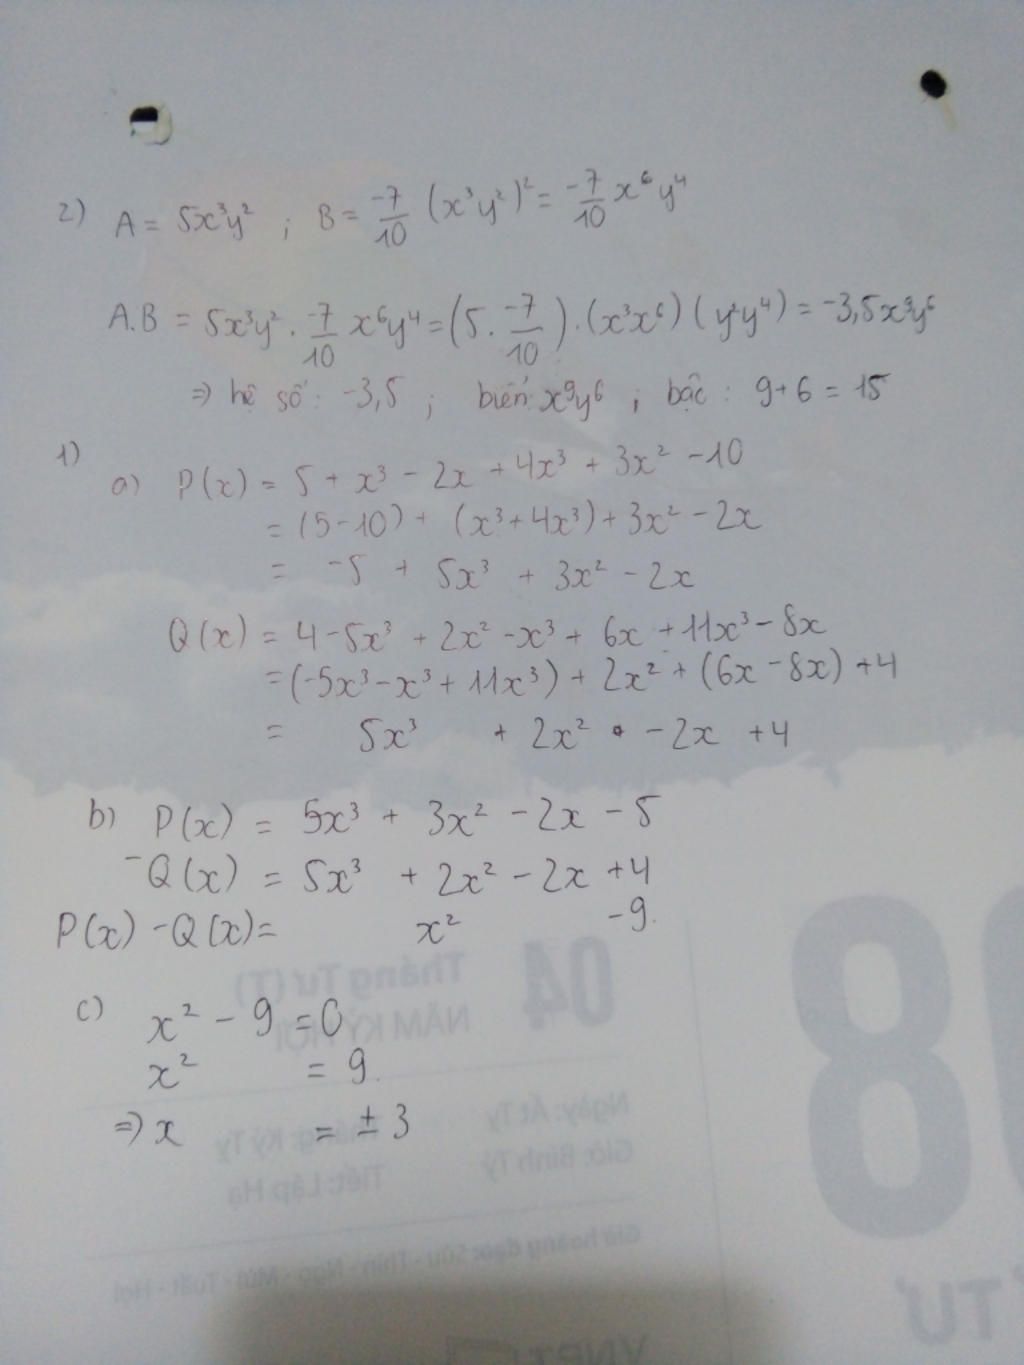 2) A = 5x³y² ; B = -7/10 (x³y²)² = -7/10 x⁶y⁴
A.B = 5x³y² . -7/10 x⁶y⁴ = (5 . -7/10) . (x³x⁶) (y²y⁴) = -3,5x⁹y⁶
=> hệ số : -3,5 ; biến x⁹y⁶ ; bậc : 9+6 = 15
1)
a) P(x) = 5 + x³ - 2x + 4x³ + 3x² - 10
= (5-10) + (x³+4x³) + 3x² - 2x
= -5 + 5x³ + 3x² - 2x
Q(x) = 4 - 5x³ + 2x² - x³ + 6x + 11x³ - 8x
= (-5x³ - x³ + 11x³) + 2x² + (6x - 8x) + 4
= 5x³ + 2x² - 2x + 4
b) P(x) = 5x³ + 3x² - 2x - 5
- Q(x) = 5x³ + 2x² - 2x + 4
P(x) - Q(x) = x² - 9.
c) x² - 9 = 0
x² = 9.
=> x = ± 3
04
Tháng Tư (T)
NĂM KỶ HỢI
Ngày: Ất Tỵ
Tháng: Kỷ Tỵ
Giờ: Bính Tý
Tiết: Lập Hạ
Giờ hoàng đạo: Sửu - Thìn - Ngọ - Mùi - Tuất - Hợi
TƯ
VNPT